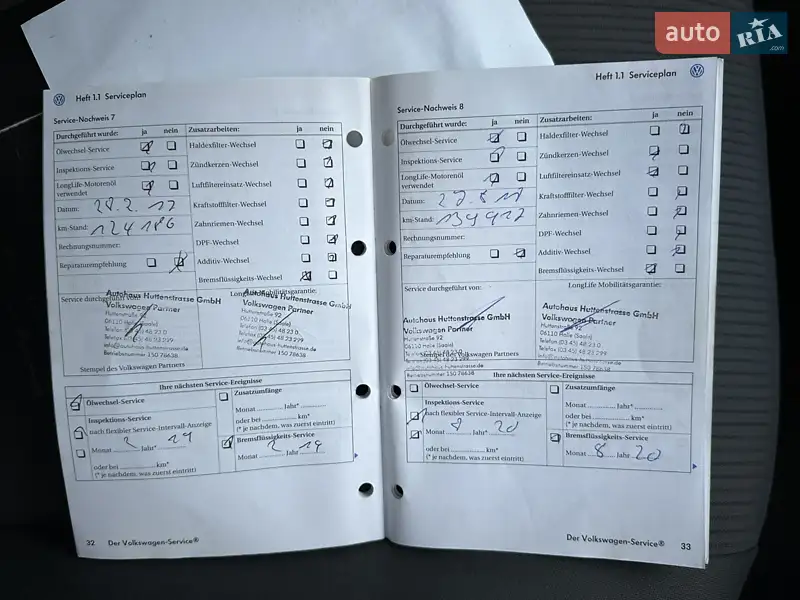 auto RIA .com
Heft 1.1 Serviceplan
Service-Nachweis 7
Durchgeführt wurde: ja nein Zusatzarbeiten: ja nein
Ölwechsel-Service Haldexfilter-Wechsel
Inspektions-Service Zündkerzen-Wechsel
LongLife-Motorenöl verwendet Luftfiltereinsatz-Wechsel
Datum: 28.2.17 Kraftstofffilter-Wechsel
km-Stand: 124186 Zahnriemen-Wechsel
Rechnungsnummer: DPF-Wechsel
Reparaturempfehlung Additiv-Wechsel
Bremsflüssigkeits-Wechsel
Service durchgeführt von: LongLife Mobilitätsgarantie:
Autohaus Huttenstrasse GmbH
Volkswagen Partner
Huttenstraße 92
06110 Halle (Saale)
Telefon (03 45) 48 23 0
Telefax (03 45) 48 23 299
info@autohaus-huttenstrasse.de
Betriebsnummer 150 76638
Autohaus Huttenstrasse GmbH
Volkswagen Partner
Huttenstraße 92
06110 Halle (Saale)
Telefon (03 45) 48 23 0
Telefax (03 45) 48 23 299
info@autohaus-huttenstrasse.de
Betriebsnummer 150 76638
Stempel des Volkswagen Partners
Ihre nächsten Service-Ereignisse
Ölwechsel-Service
Inspektions-Service
nach flexibler Service-Intervall-Anzeige
2 19
Monat Jahr*
oder bei km*
(* je nachdem, was zuerst eintritt)
Zusatzumfänge
Monat Jahr*
oder bei km*
(* je nachdem, was zuerst eintritt)
Bremsflüssigkeits-Service
Monat 2 Jahr 19
32 Der Volkswagen-Service®
Heft 1.1 Serviceplan
Service-Nachweis 8
Durchgeführt wurde: ja nein Zusatzarbeiten: ja nein
Ölwechsel-Service Haldexfilter-Wechsel
Inspektions-Service Zündkerzen-Wechsel
LongLife-Motorenöl verwendet Luftfiltereinsatz-Wechsel
Datum: 27.8.18 Kraftstofffilter-Wechsel
km-Stand: 139917 Zahnriemen-Wechsel
Rechnungsnummer: DPF-Wechsel
Reparaturempfehlung Additiv-Wechsel
Bremsflüssigkeits-Wechsel
Service durchgeführt von: LongLife Mobilitätsgarantie:
Autohaus Huttenstrasse GmbH
Volkswagen Partner
Huttenstraße 92
06110 Halle (Saale)
Betriebsnummer 150 76638
Autohaus Huttenstrasse GmbH
Volkswagen Partner
Huttenstraße 92
06110 Halle (Saale)
Telefon (03 45) 48 23 0
Telefax (03 45) 48 23 299
info@autohaus-huttenstrasse.de
Betriebsnummer 150 76638
Stempel des Volkswagen Partners
Ihre nächsten Service-Ereignisse
Ölwechsel-Service
Inspektions-Service
nach flexibler Service-Intervall-Anzeige
8 20
Monat Jahr*
oder bei km*
(* je nachdem, was zuerst eintritt)
Zusatzumfänge
Monat Jahr*
oder bei km*
(* je nachdem, was zuerst eintritt)
Bremsflüssigkeits-Service
Monat 8 Jahr 20
Der Volkswagen-Service® 33